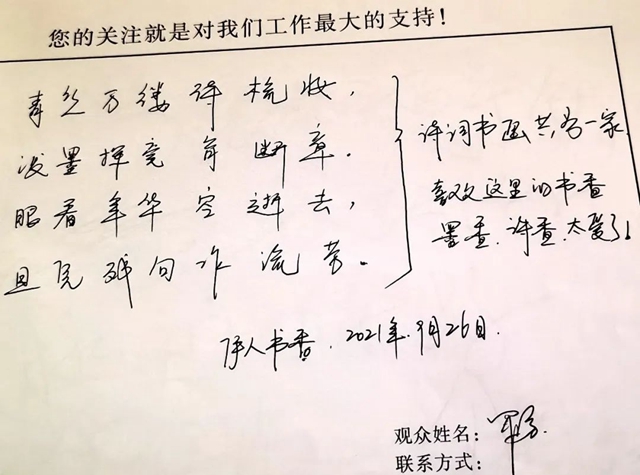 您的关注就是对我们工作最大的支持！
青丝万缕诗梳妆，
泼墨挥毫有断章。
眼看年华空逝去，
且凭残句作流芳。
诗词书画共为一家，
喜欢这里的书香
墨香、诗香，太爱了！
人书香 2021年9月26日
观众姓名：
联系方式：